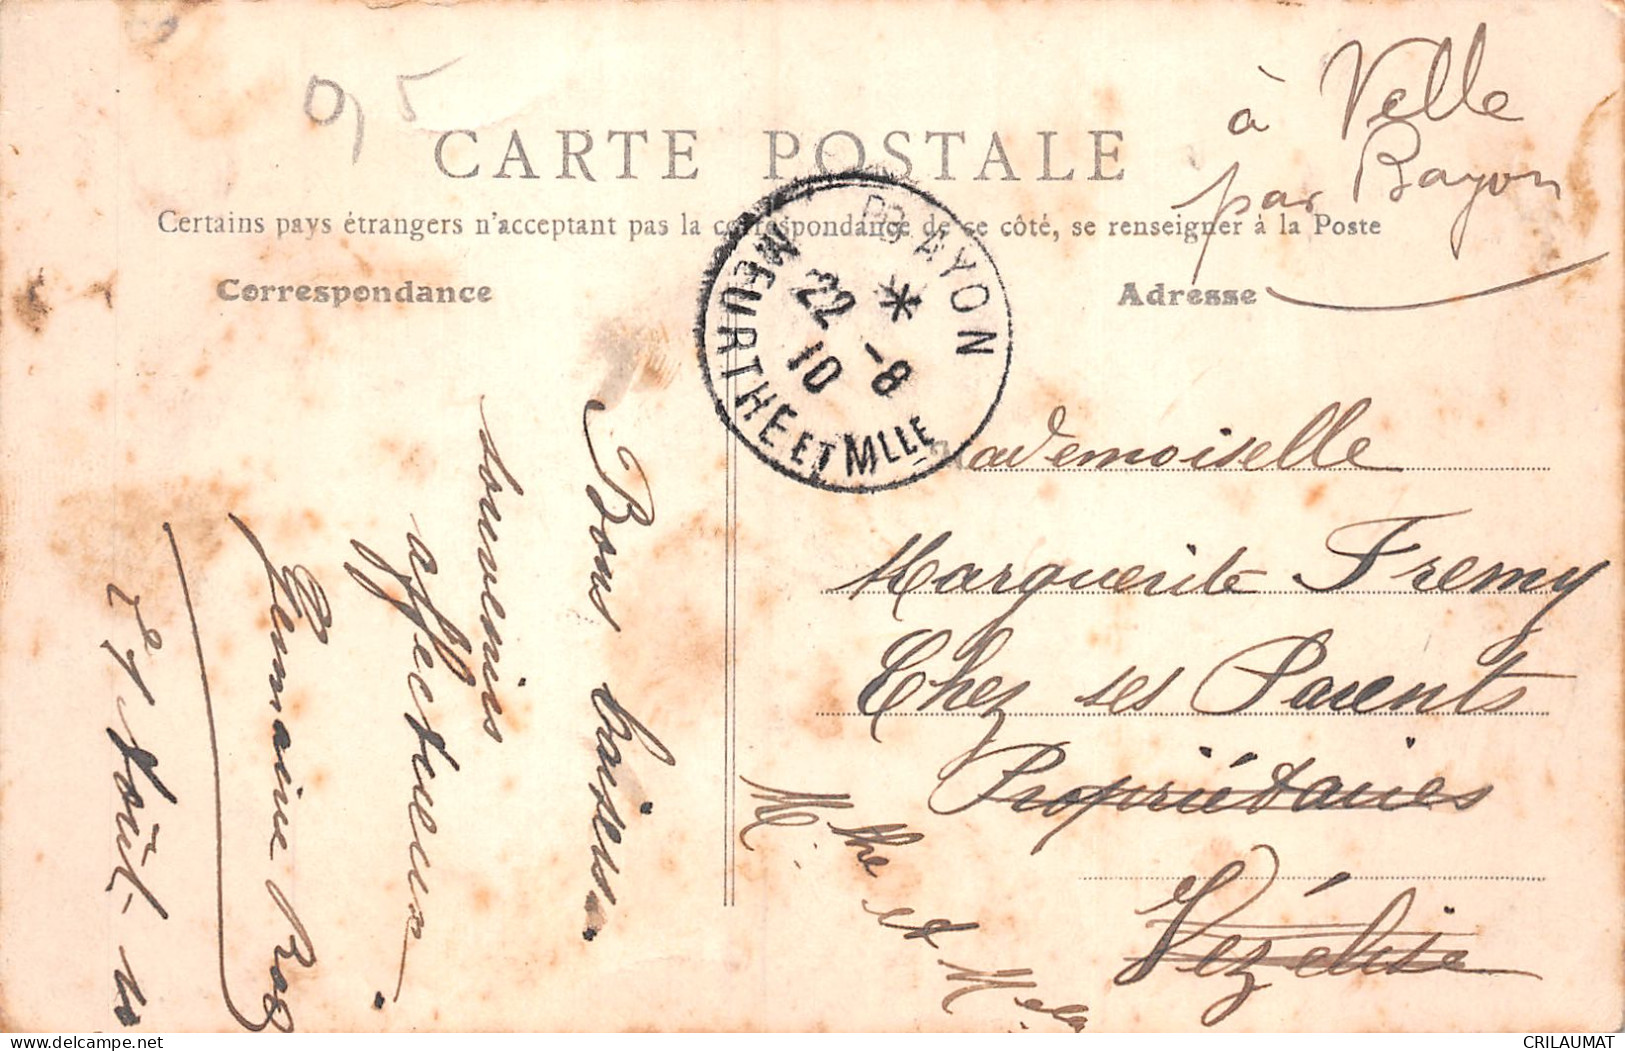 0,5
à Velle
par Bayon
CARTE POSTALE
Certains pays étrangers n'acceptent pas la correspondance de ce côté, se renseigner à la Poste
Correspondance
Adresse
BAYON
22 - 8
10
MEURTHE ET MLLE
Bons baisers.
souvenirs
affectueux
Germaine
Août
Mademoiselle
Marguerite Fremy
Chez ses Parents
Propriétaires
Vézelise
M.the et M.elle
CRILAUMAT